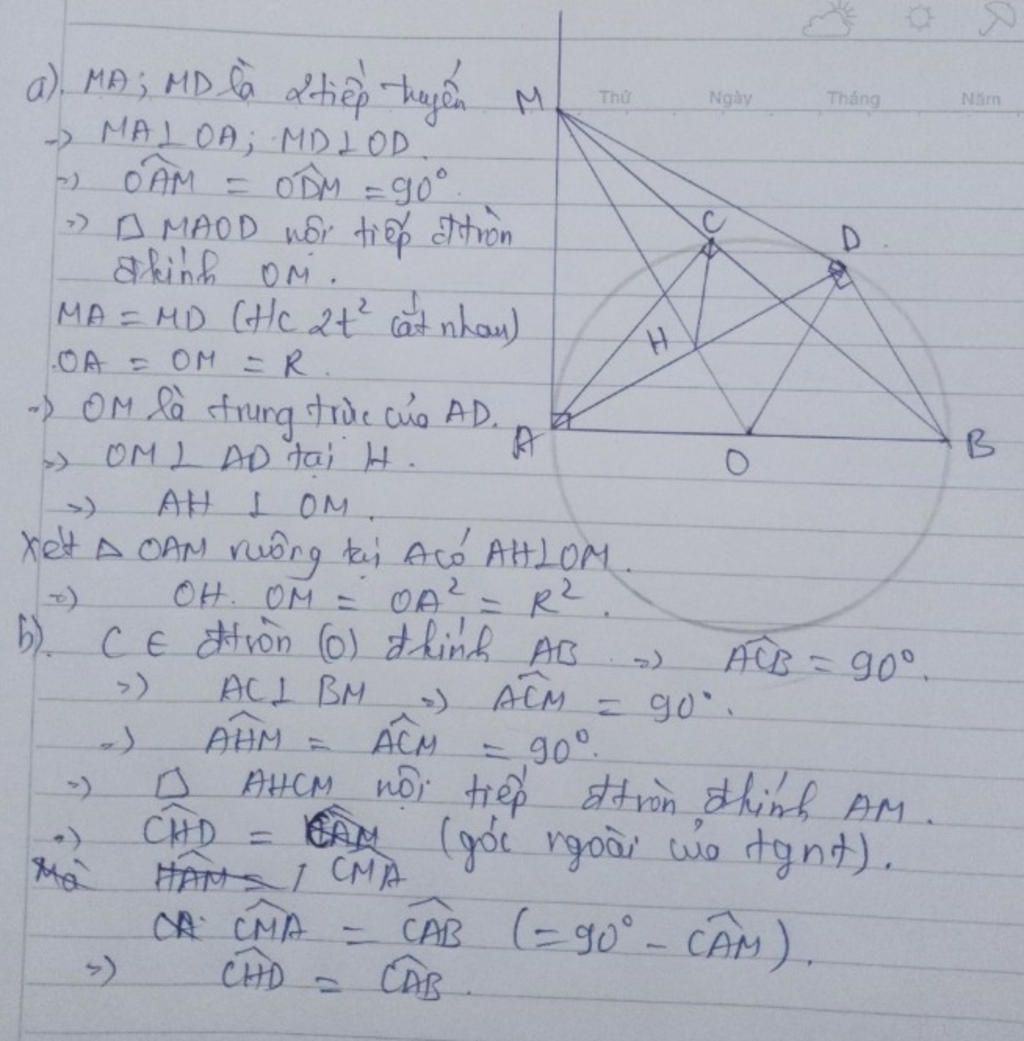 Thứ Ngày Tháng Năm
a). MA; MD là 2 tiếp tuyến
-> MA ⊥ OA; MD ⊥ OD.
=> OÂM = OD̂M = 90°.
=> □ MAOD nội tiếp đtròn
đkính OM.
MA = MD (Hc 2t² cắt nhau)
OA = OM = R.
=> OM là trung trực của AD.
=> OM ⊥ AD tại H.
=> AH ⊥ OM.
Xét Δ OAM vuông tại A có AH ⊥ OM.
=> OH. OM = OA² = R².
b). C ∈ đtròn (O) đkính AB => AĈB = 90°.
=> AC ⊥ BM => AĈM = 90°.
=> AĤM = AĈM = 90°.
=> □ AHCM nội tiếp đtròn đkính AM.
=> CĤD = CÂM (góc ngoài của tgnt).
Mà HÂM = CM̂A
CA CM̂A = CÂB (= 90° - CÂM).
=> CĤD = CÂB.
M
C
D
H
A
O
B